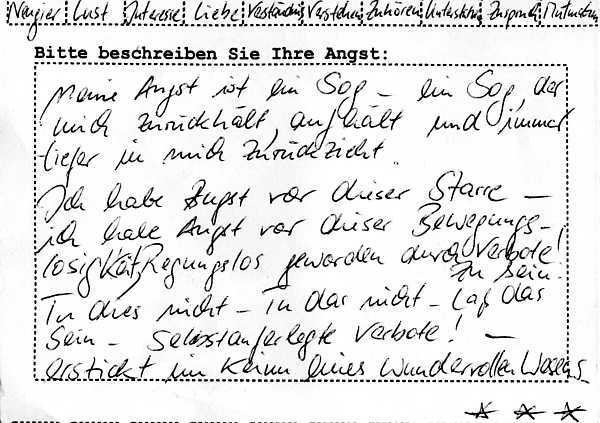 Neugier Lust Interesse Liebe Verständnis Verstehen Zuhören Unterstützung Zuspruch
Bitte beschreiben Sie Ihre Angst:
Meine Angst ist ein Sog – ein Sog, der
mich zurückhält, aufhält und immer
tiefer in mich zurückzieht.
Ich habe Angst vor dieser Starre –
ich habe Angst vor dieser Bewegungs-
losigkeit, Regungslos geworden durch Verbote!
zu sein.
Tu dies nicht – Tu das nicht – Laß das
Sein – Selbstauferlegte Verbote! –
erstickt im Keim eines wundervollen Wesens